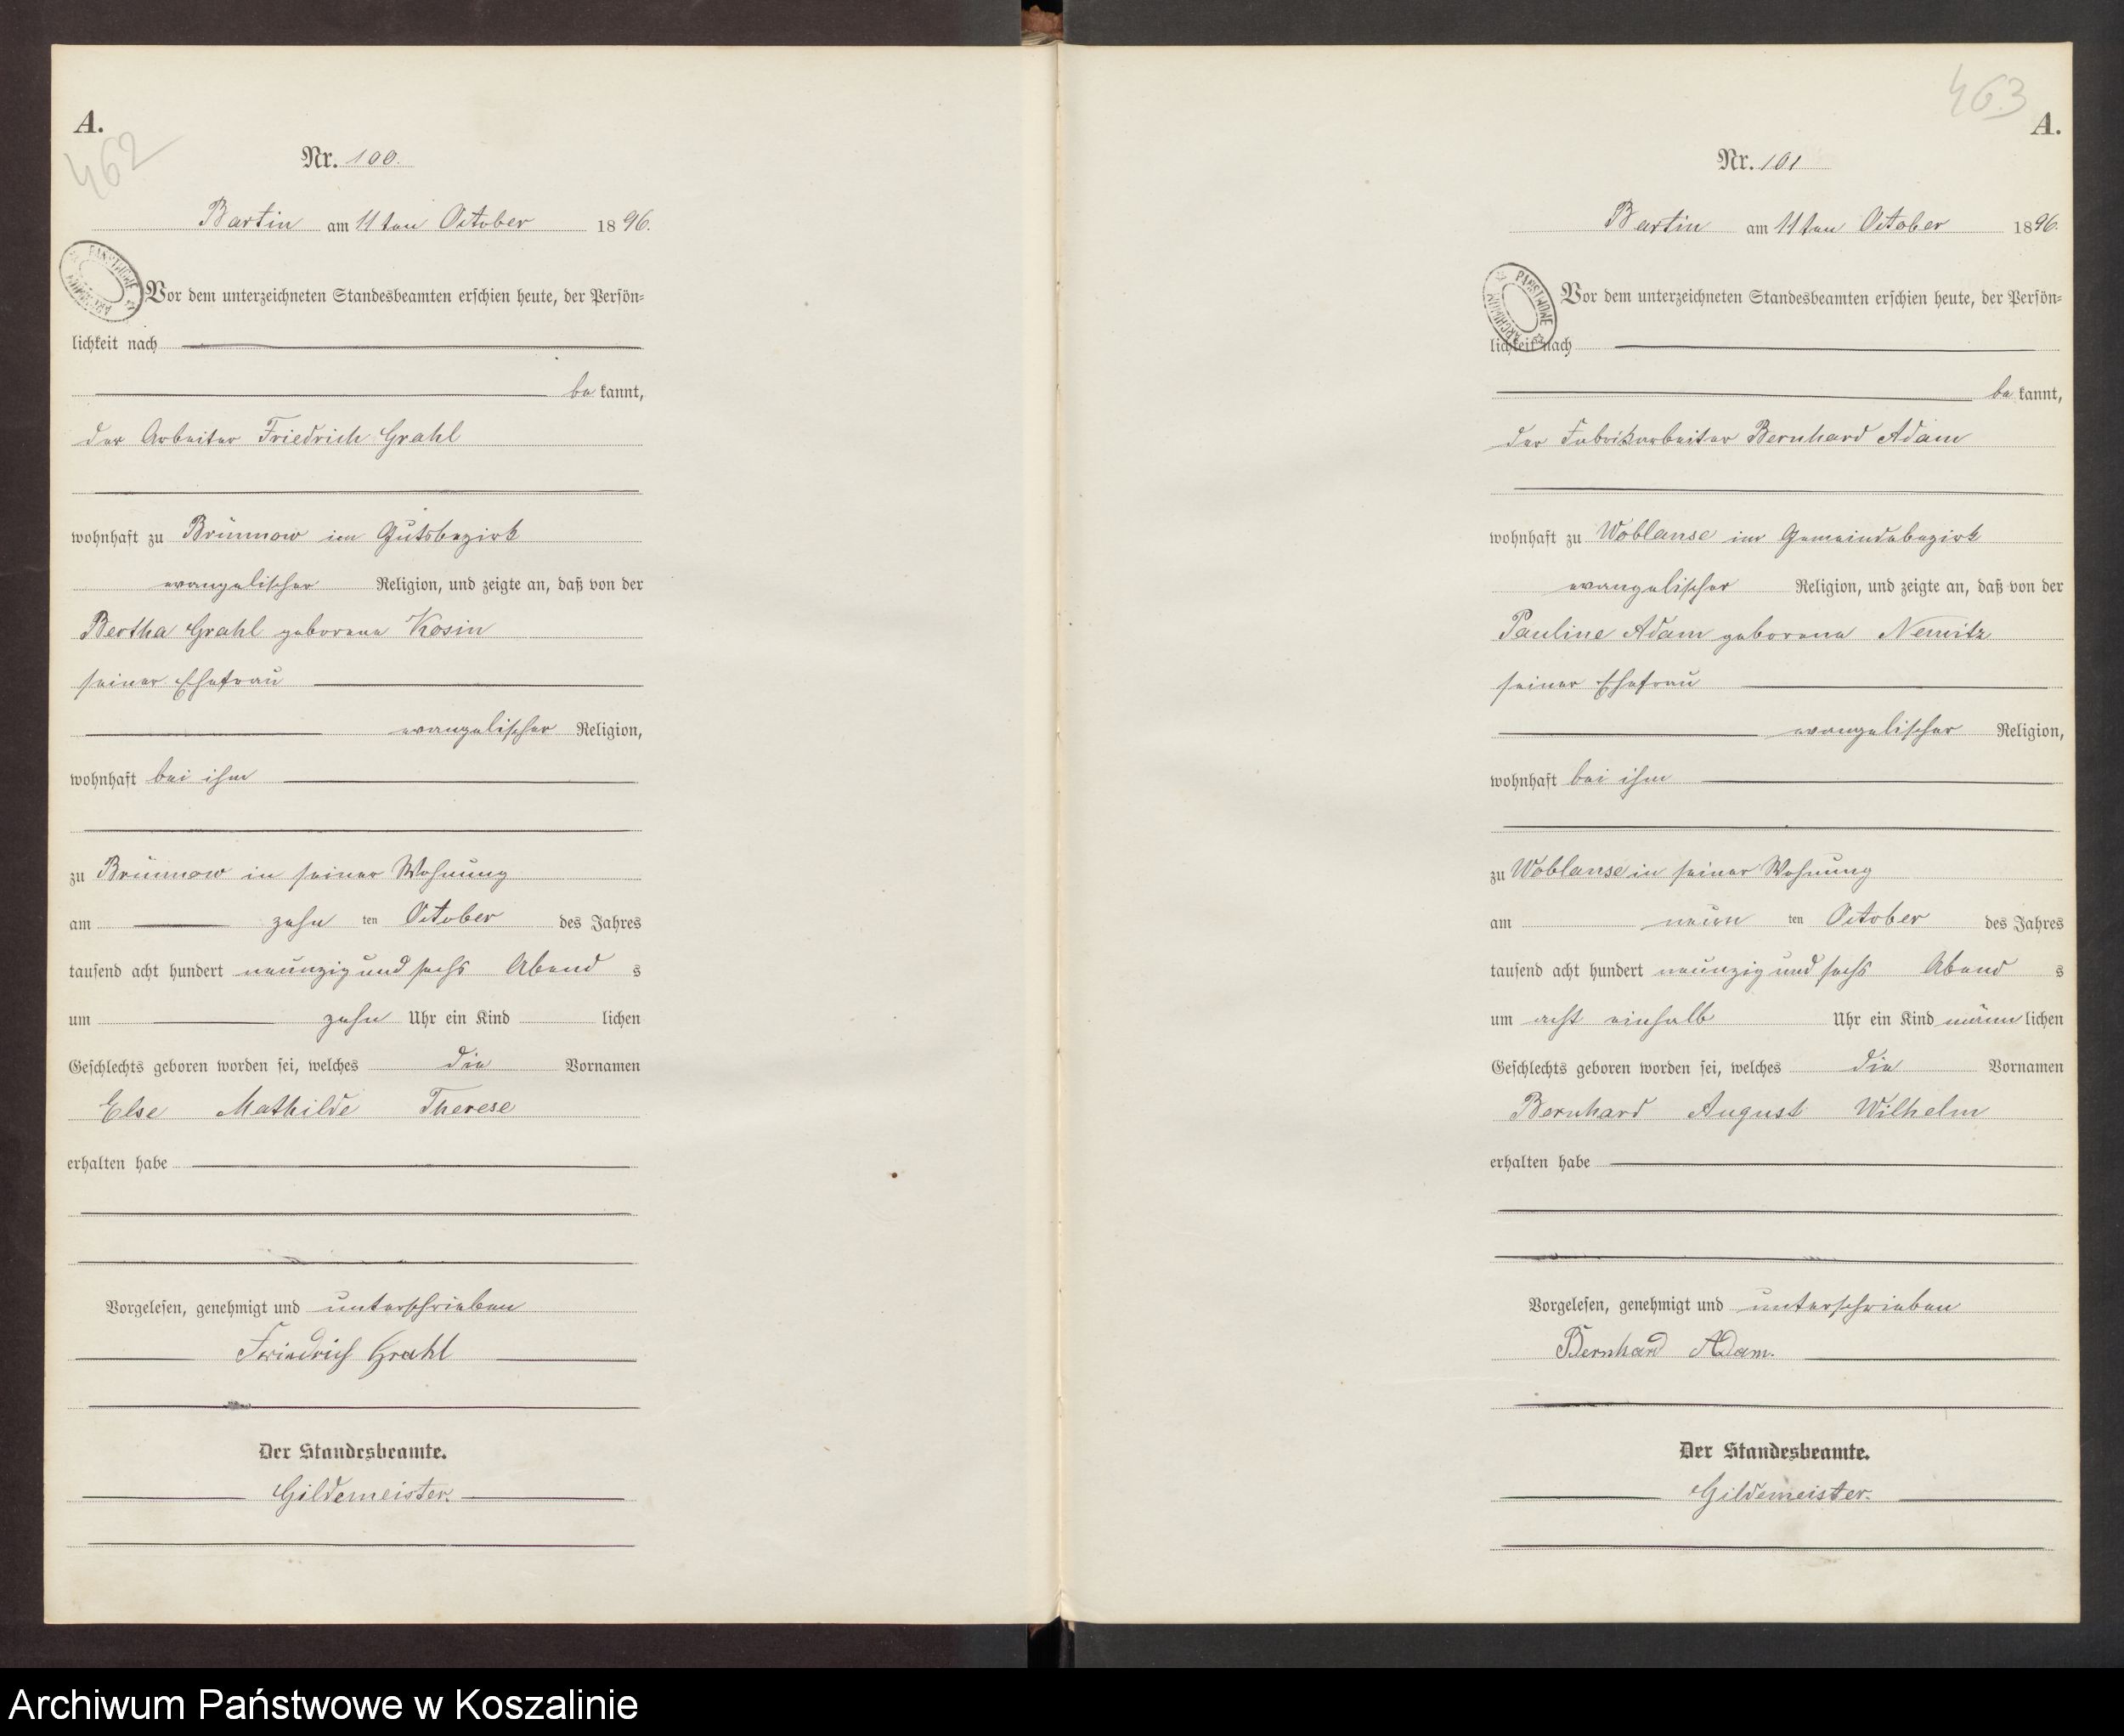 A.
462
Nr. 100.
Bartin am 11ten October 1896.
PAŃSTWOWE ARCHIWUM
Vor dem unterzeichneten Standesbeamten erschien heute, der Persön=
lichkeit nach
bekannt,
der Arbeiter Friedrich Grahl
wohnhaft zu Brünnow im Gutsbezirk
evangelischer Religion, und zeigte an, daß von der
Bertha Grahl geborene Kosin
seiner Ehefrau
evangelischer Religion,
wohnhaft bei ihm
zu Brünnow in seiner Wohnung
am zehn ten October des Jahres
tausend acht hundert neunzig und sechs Abends
um zehn Uhr ein Kind lichen
Geschlechts geboren worden sei, welches die Vornamen
Else Mathilde Therese
erhalten habe
Vorgelesen, genehmigt und unterschrieben
Friedrich Grahl
Der Standesbeamte.
Gildemeister.
463
A.
Nr. 101
Bartin am 11ten October 1896.
PAŃSTWOWE ARCHIWUM
Vor dem unterzeichneten Standesbeamten erschien heute, der Persön=
lichkeit nach
bekannt,
der Fabrikarbeiter Bernhard Adam
wohnhaft zu Woblanse im Gemeindebezirk
evangelischer Religion, und zeigte an, daß von der
Pauline Adam geborene Nemitz
seiner Ehefrau
evangelischer Religion,
wohnhaft bei ihm
zu Woblanse in seiner Wohnung
am neun ten October des Jahres
tausend acht hundert neunzig und sechs Abends
um acht einhalb Uhr ein Kind männlichen
Geschlechts geboren worden sei, welches die Vornamen
Bernhard August Wilhelm
erhalten habe
Vorgelesen, genehmigt und unterschrieben
Bernhard Adam.
Der Standesbeamte.
Gildemeister.
Archiwum Państwowe w Koszalinie